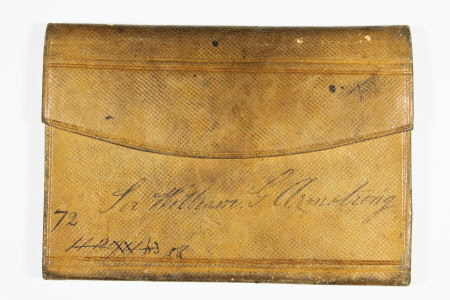 Sir William G Armstrong
72